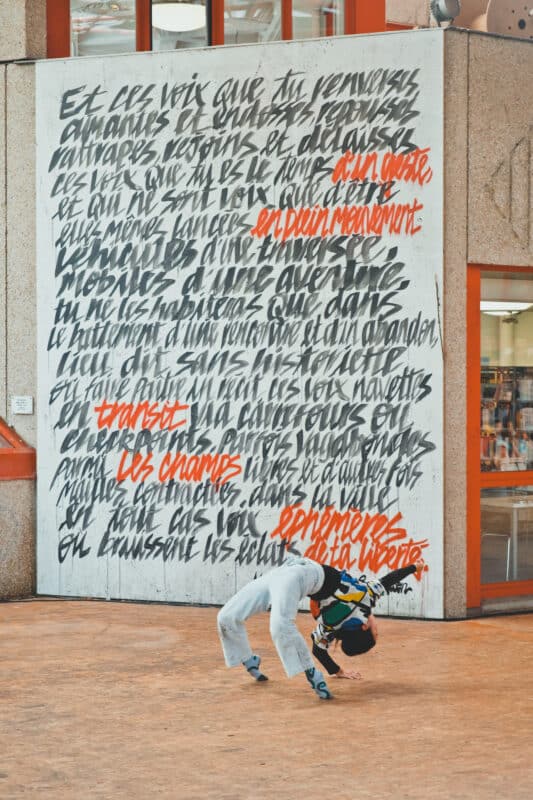 Et ces voix que tu renverses
aimantes et endosses repousses
rattrapes, rejoins et délaisses
ces voix que tu es le temps d'un geste,
et qui ne sont voix que d'être
elles mêmes lancées en plein mouvement
véhicules d'une traversée,
mobiles d'une aventure,
tu ne les habiteras que dans
le battement d'une rencontre et d'un abandon,
lieu dit sans historiette
où faire paître un vent ces voix navettes
en transit via carrefours ou
checkpoints, parfois vagabondes
parmi les champs libres et d'autres fois
mailles contractées, dans la ville
en tout cas voix éphémères
où bruissent les éclats de ta liberté